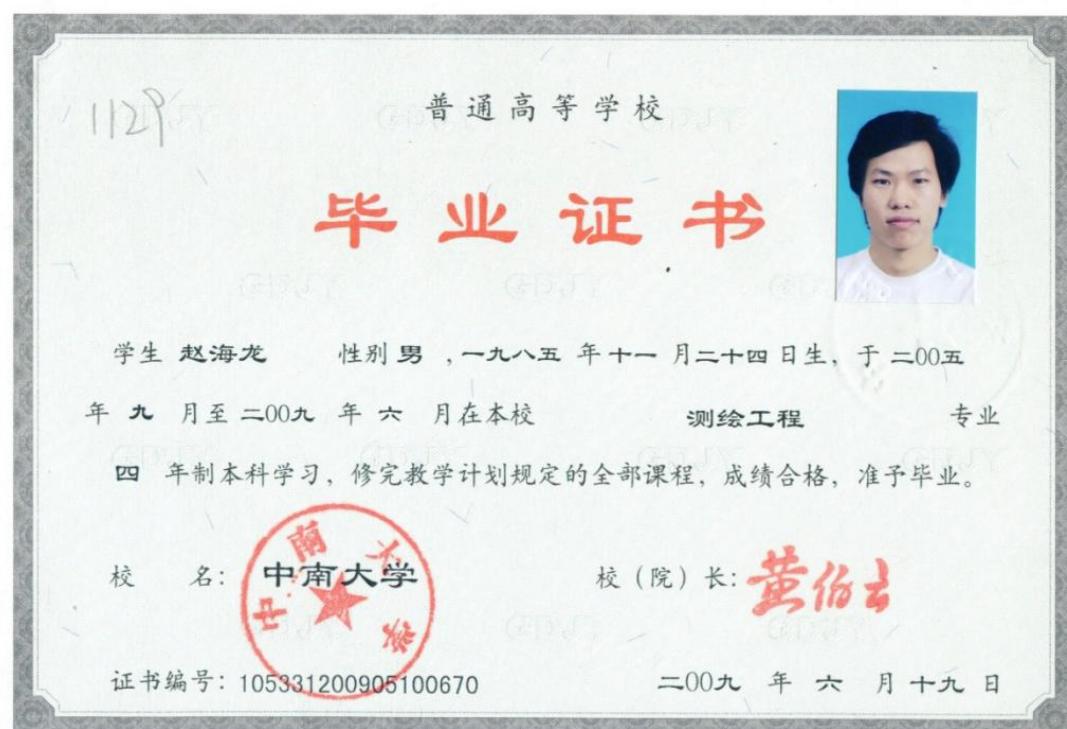 1129
普通高等学校
毕业证书
学生 赵海龙 性别 男 ,一九八五 年 十一 月 二十四 日生, 于 二00五
年 九 月至 二00九 年 六 月在本校 测绘工程 专业
四 年制本科学习, 修完教学计划规定的全部课程, 成绩合格, 准予毕业。
校 名: 中南大学 校(院)长: 黄伯云
中南大学
证书编号: 105331200905100670 二00九 年 六 月 十九 日